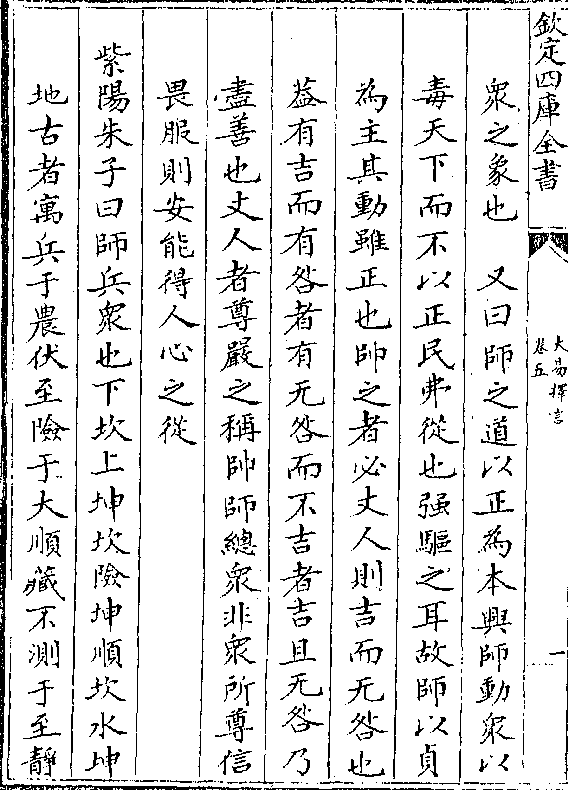 欽定四庫全書
大易擇言
卷五
一
衆之象也　又曰師之道以正為本興師動衆以
毒天下而不以正民弗從也强驅之耳故師以貞
為主其動雖正也帥之者必丈人則吉而无咎也
葢有吉而有咎者有无咎而不吉者吉且无咎乃
盡善也丈人者尊嚴之稱帥師總衆非衆所尊信
畏服則安能得人心之從
紫陽朱子曰師兵衆也下坎上坤坎險坤順坎水坤
地古者寓兵于農伏至險于大順藏不測于至靜